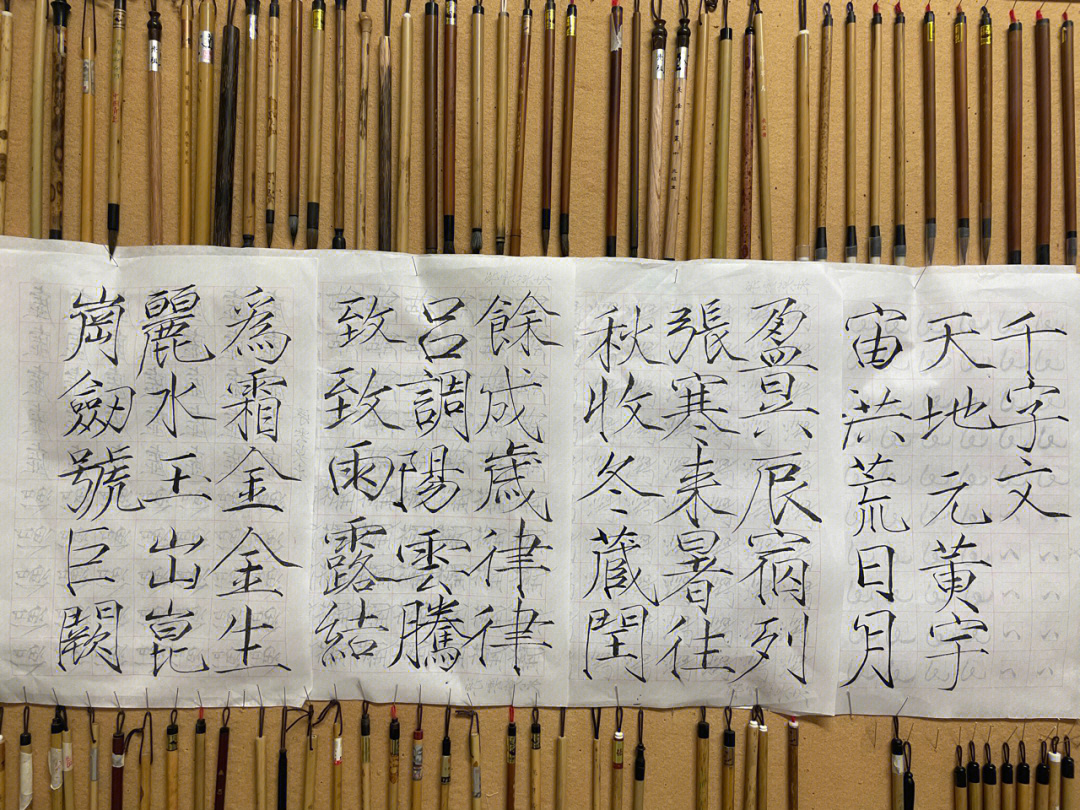 千字文
天地元黄宇
宙洪荒日月
盈昃辰宿列
張寒来暑往
秋收冬蔵閏
餘成歳律律
呂調陽雲騰
致致雨露結
爲霜金金生
麗水玉山崑
崗劒號巨闕